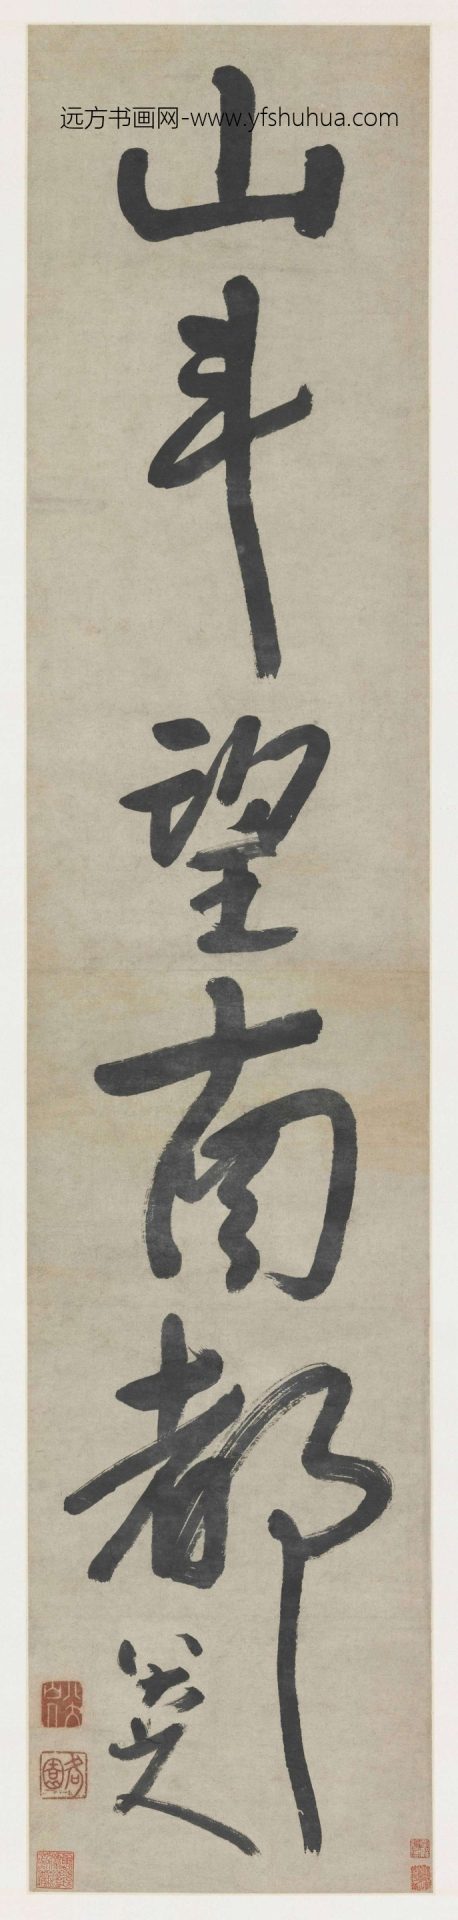 远方书画网-www.yfshuhua.com
山斗望南都
八大山人